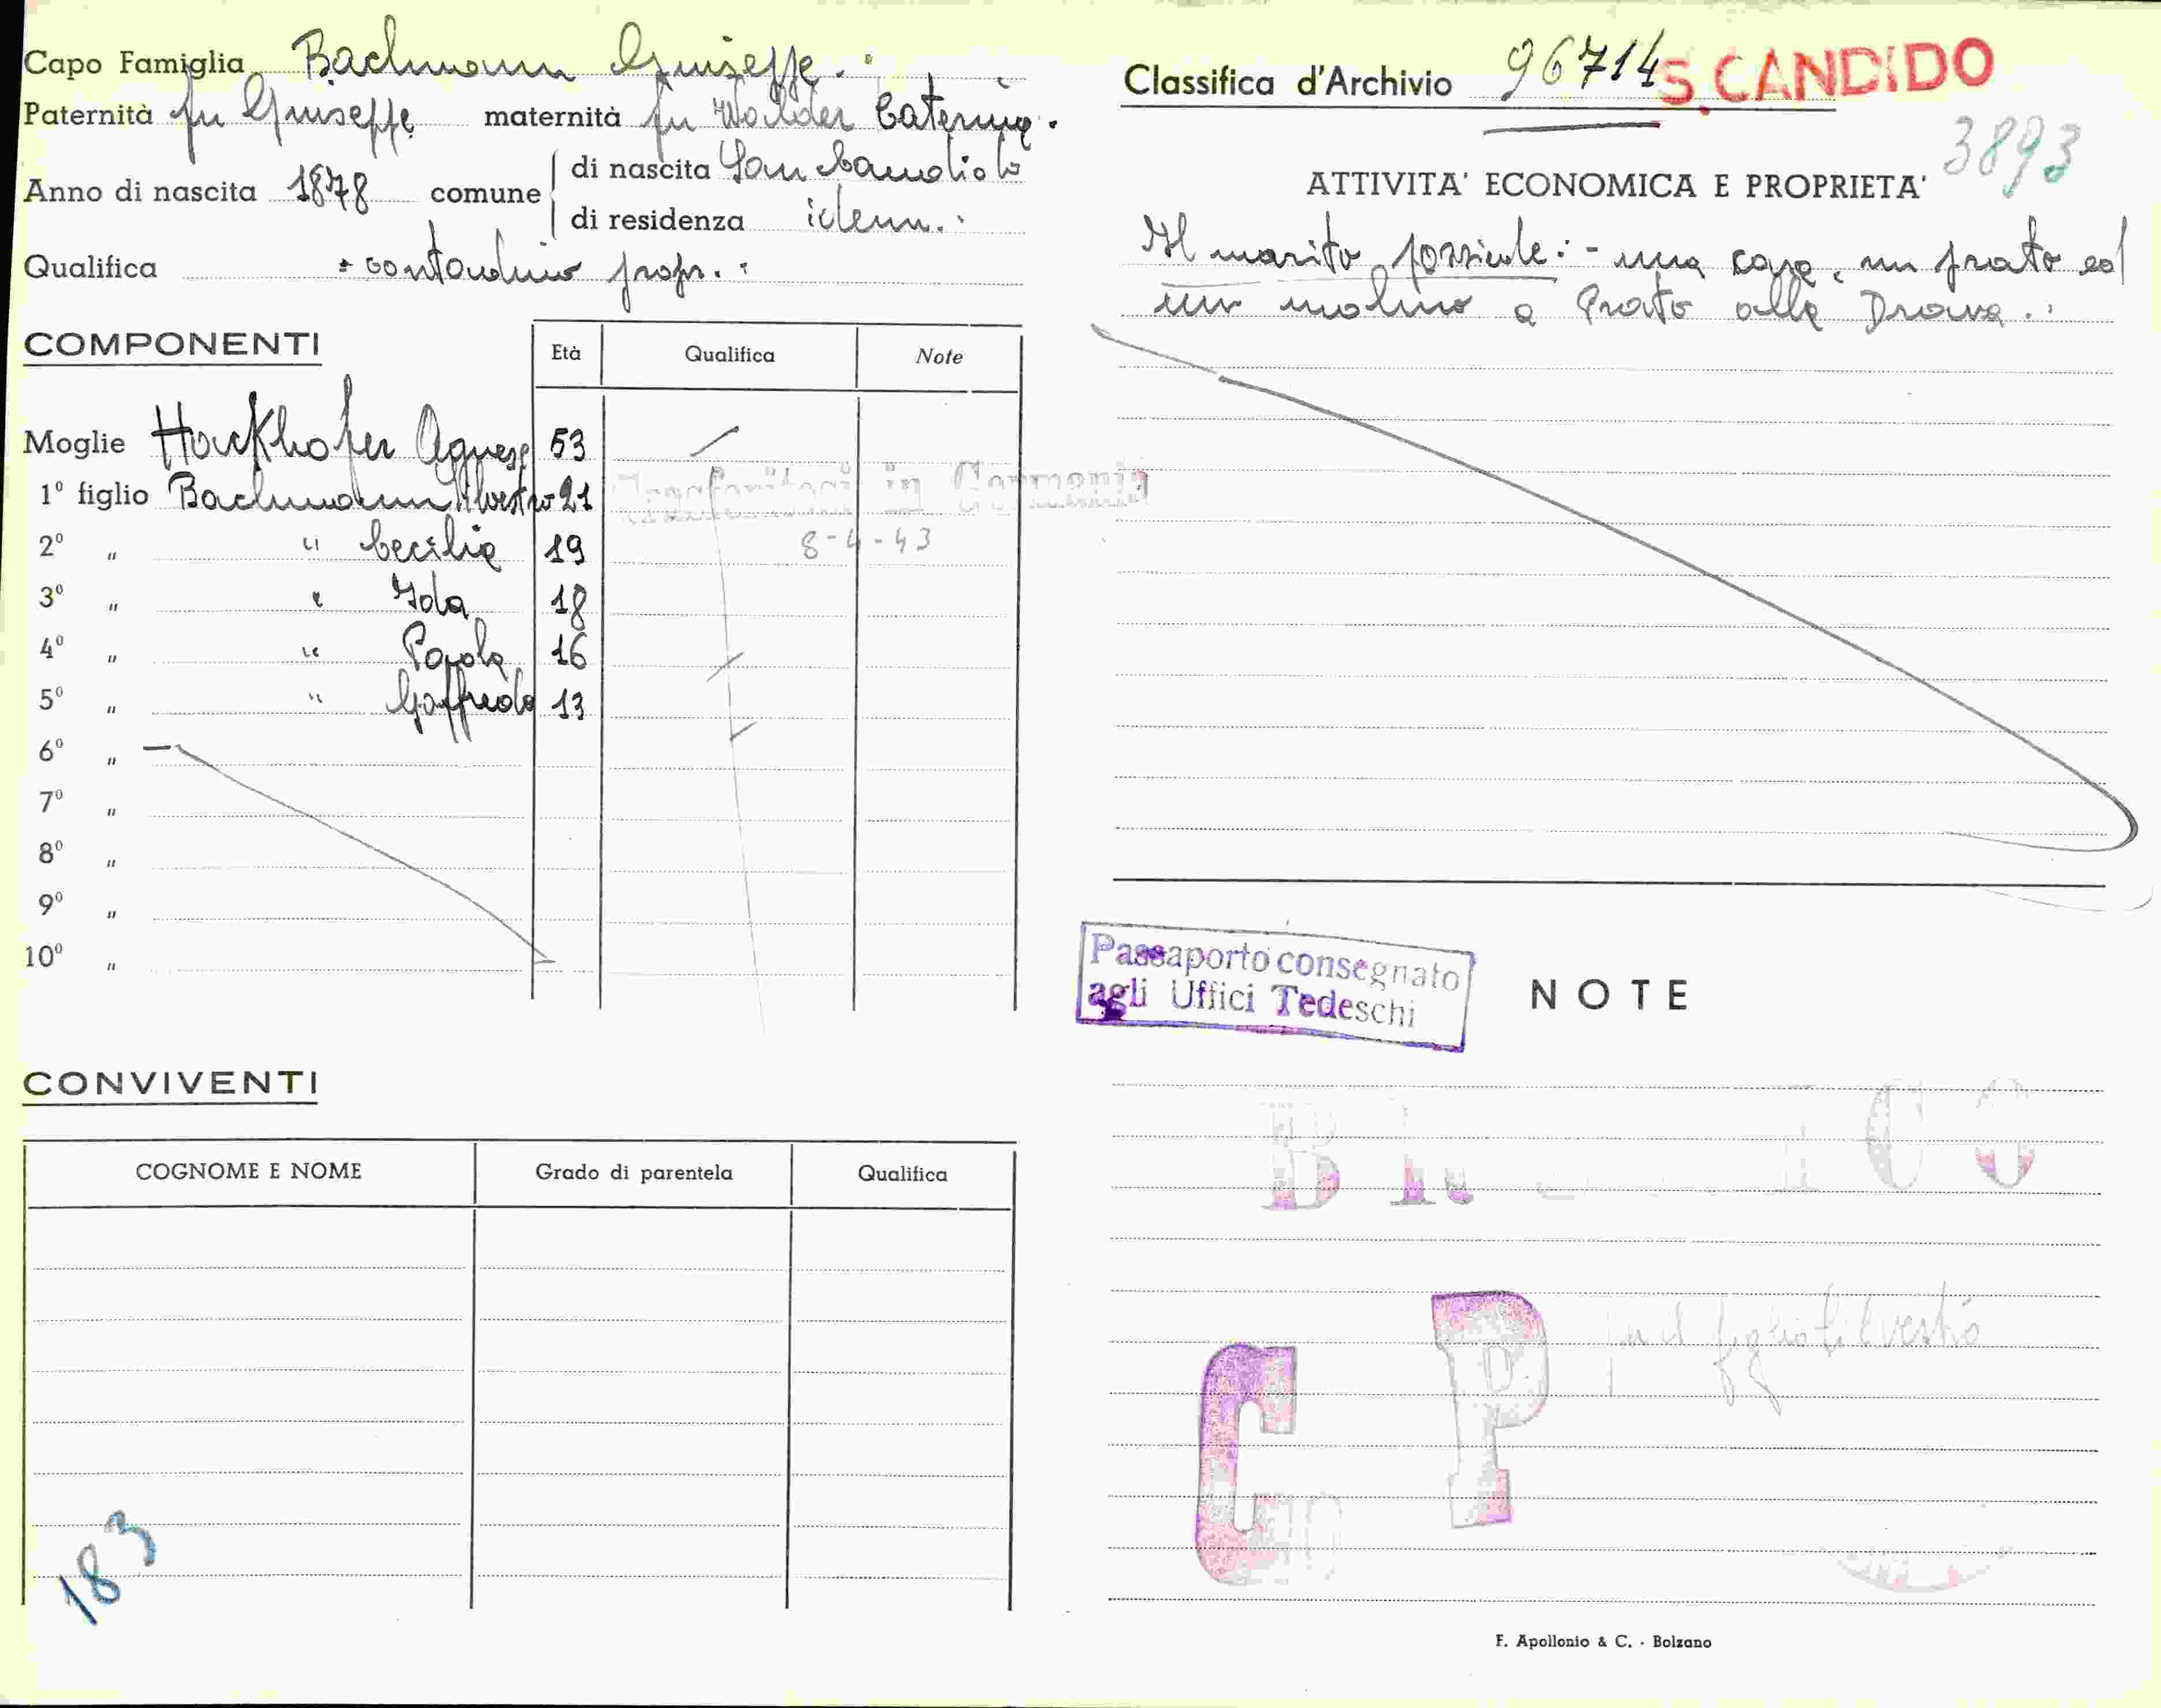 Capo Famiglia Bachmann Giuseppe.
Paternità fu Giuseppe maternità fu Walder Caterina.
Anno di nascita 1878 comune di nascita San Candido
di residenza idem.
Qualifica contadino propr.
COMPONENTI Età Qualifica Note
Moglie Hackhofer Agnese 53
1º figlio Bachmann Silvestro 21 Trasferitosi in Germania
2º " " Cecilia 19 8-4-43
3º " " Ida 18
4º " " Paola 16
5º " " Goffredo 13
6º "
7º "
8º "
9º "
10º "
CONVIVENTI
COGNOME E NOME Grado di parentela Qualifica
183
Classifica d'Archivio 96714 S. CANDIDO
3893
ATTIVITA' ECONOMICA E PROPRIETA'
Il marito possiede: - una casa, un prato ed
un molino a Prato alla Drava.
Passaporto consegnato
agli Uffici Tedeschi
NOTE
P per il figlio Silvestro
C
F. Apollonio & C. - Bolzano